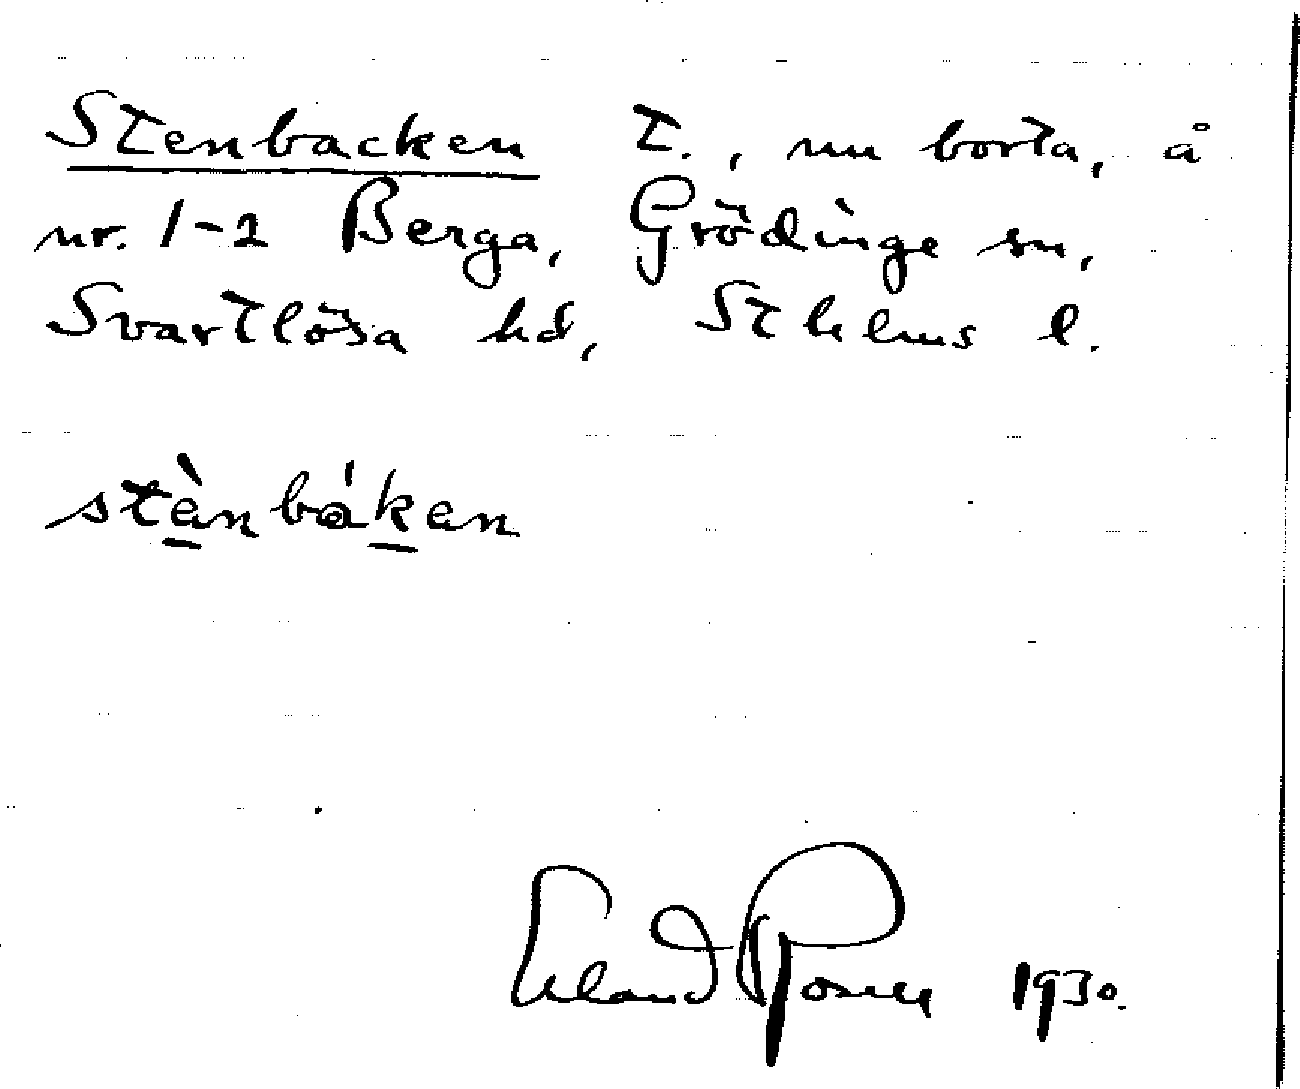 Stenbacken t., nu borta, å
nr. 1-2 Berga, Grödinge sn,
Svartlösa hd, Sthlms l.
stènbáken
Erland Rosell 1930.